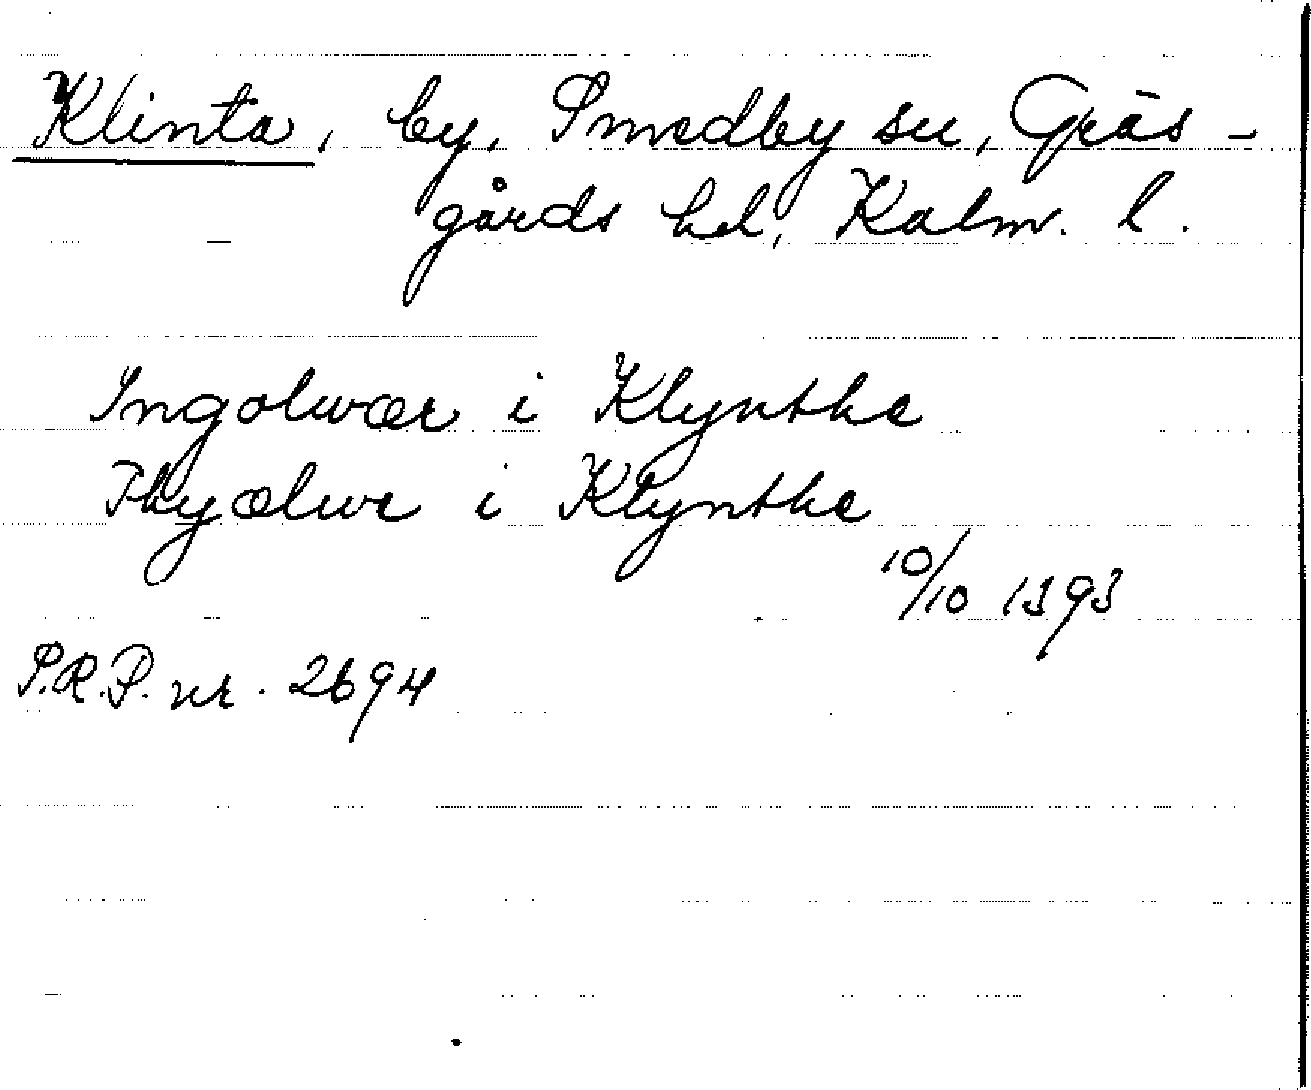 Klinta, by, Smedby sn, Gräs-
gårds hd, Kalm. l.
Ingolwær i Klynthe
Thyælwr i Klynthe
10/10 1393
S.R.P. nr. 2694